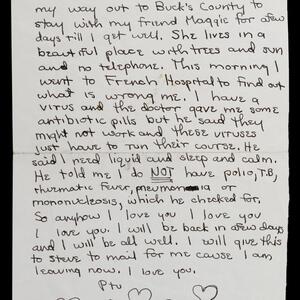 my way out to Buck's County to
stay with my friend Maggie for a few
days till I get well. She lives in a
beautiful place with trees and sun
and no telephone. This morning I
went to French Hospital to find out
what is wrong me. I have a
virus and the doctor gave me some
antibiotic pills but he said they
might not work and these viruses
just have to run their course. He
said I need liquid and sleep and calm.
He told me I do NOT have polio, T.B,
rhumatic fever, pneumonia or
mononucleosis, which he checked for.
So anyhow I love you I love you
I love you. I will be back in a few days
and I will be all well. I will give this
to Steve to mail for me cause I am
leaving now. I love you.